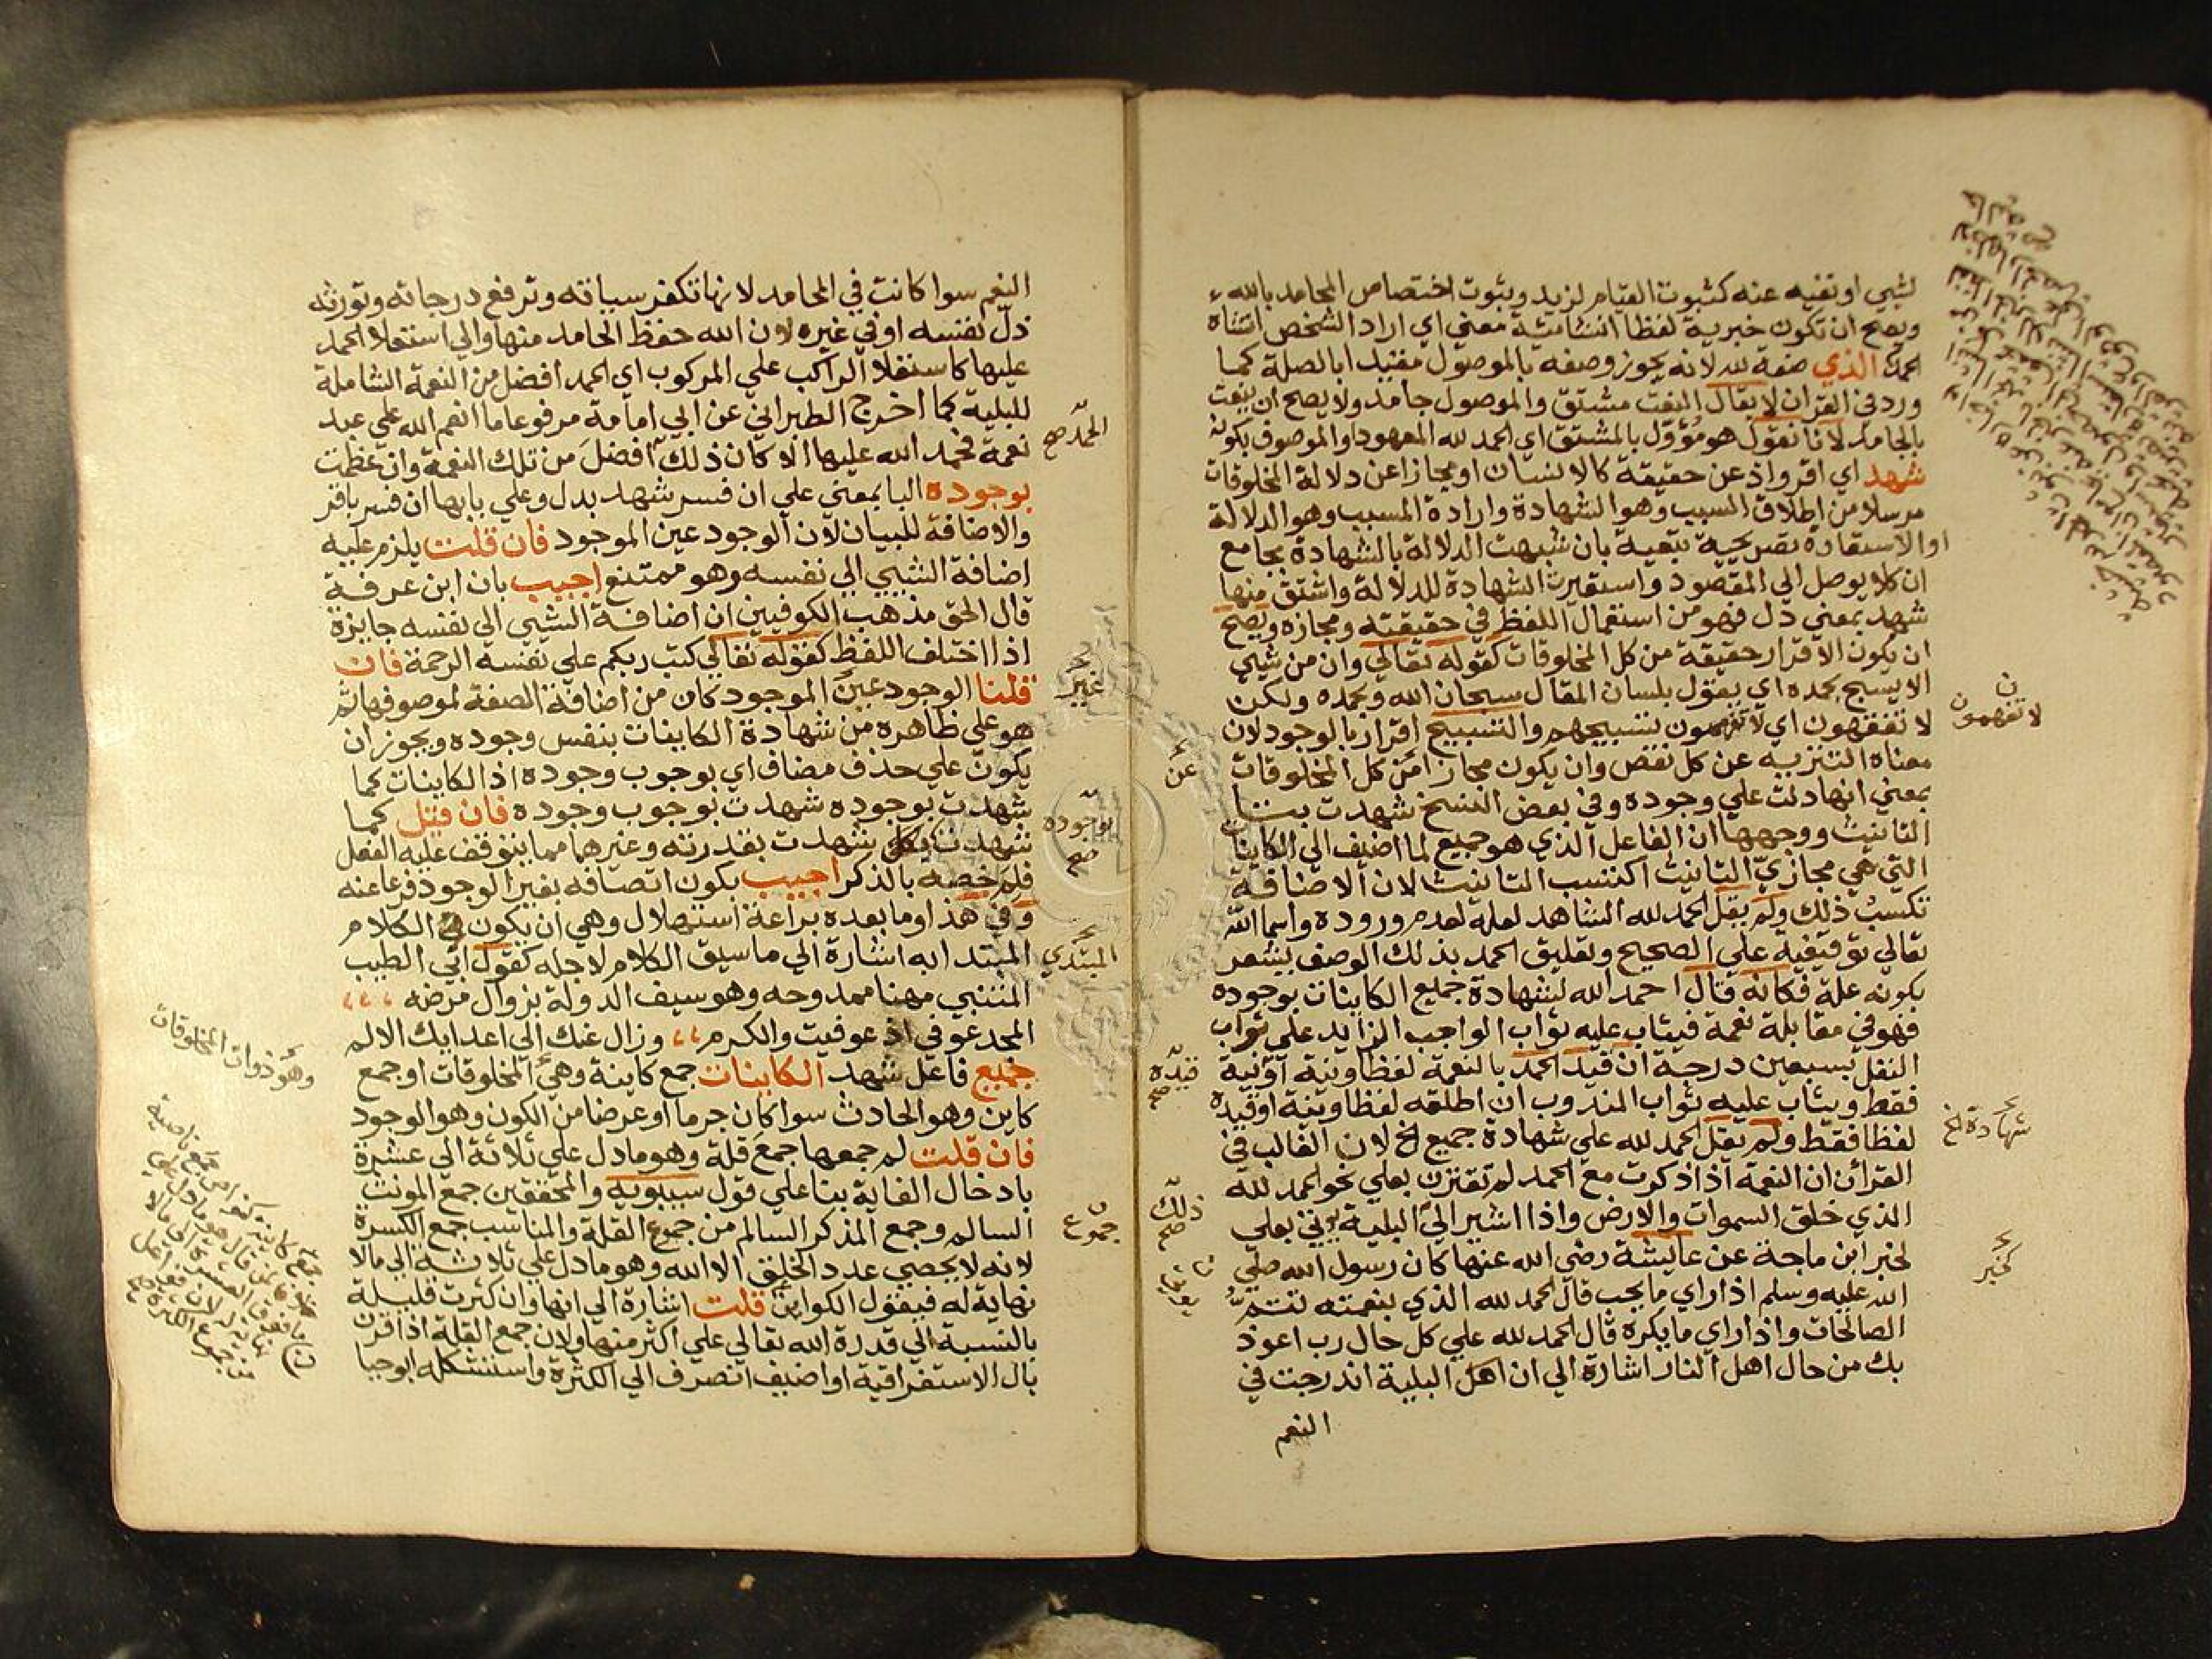 لشيي او نفيه عنه كثبوت القيام لزيد وبثوت اختصاص المحامد بالله
ويصح ان تكون خبرية لفظا انشائية معني اي اراد الشخص انشاء
الحمد الذي صفة لله لانه يجوز وصفه بالموصول مفيدا بالصلة كما
ورد في القران لا يقال النعت مشتق والموصول جامد ولا يصح ان ينعت
بالجامد لانا نقول هو مؤول بالمشتق اي الحمد لله المعهود او الموصوف بكونه
شهد اي اقر واذعن حقيقة كالانسان او مجازا عن دلالة المخلوقات
مرسلا من اطلاق السبب وهو الشهادة وارادة المسبب وهو الدلالة
او الاستعارة تصريحية تبعية بان شبهت الدلالة بالشهادة بجامع
ان كلا يوصل الي المقصود واستعيرت الشهادة للدلالة واشتق منها
شهد بمعني دل فهو من استعمال اللفظ في حقيقته ومجازه ويصح
ان يكون الاقرار حقيقة من كل المخلوقات كقوله تعالي وان من شيي
الا يسبح بحمده اي يقول بلسان المقال سبحان الله وبحمده ولكن
لا تفقهون اي لا تفهمون تسبيحهم والتسبيح اقرار بالوجود لان
معناه التنزيه عن كل نقص وان يكون مجازا من كل المخلوقات
بمعني انها دلت علي وجوده وفي بعض النسخ شهدت بتا
التانيث ووجهها ان الفاعل الذي هو جميع لما اضيف الي الكاينات
التي هي مجازي التانيث اكتسب التانيث لان الاضافة
تكسب ذلك ولم يقل الحمد لله الشاهد لعله لعدم وروده واسما الله
تعالي توقيفية علي الصحيح وتعليق الحمد بذلك الوصف يشعر
بكونه علة فكانه قال احمد الله لشهادة جميع الكاينات بوجوده
فهو في مقابلة نعمة فيثاب عليه ثواب الواجب الزايد علي ثواب
النفل بسبعين درجة ان قيد الحمد بالنعمة لفظا ونية او نية
فقط ويثاب عليه ثواب المندوب ان اطلقه لفظا ونية او قيده
لفظا فقط ولم يقل الحمد لله علي شهادة جميع الخ لان الغالب في
القرآن ان النعمة اذا ذكرت مع الحمد لم تقترن بعلي نحو الحمد لله
الذي خلق السموات والارض واذا اشير الي البلية يوتي بعلي
لخبر ابن ماجة عن عايشة رضي الله عنها كان رسول الله صلي
الله عليه وسلم اذا راي ما يحب قال الحمد لله الذي بنعمته تتم
الصالحات واذا راي ما يكره قال الحمد لله علي كل حال رب اعوذ
بك من حال اهل النار اشارة الي ان اهل البلية اندرجت في
النعم
لا تفهمون
عن
شهادة الخ
قيده صح
ذلك صح
لخبر
النعم سوا كانت في المحامد لانها تكفر سياته وترفع درجاته وتورثه
ذل نفسه او في غيره لان الله حفظ الحامد منها والي استعلا الحمد
عليها كاستعلا الراكب علي المركوب اي الحمد افضل من النعمة الشاملة
للبلية كما اخرج الطبراني عن ابي امامة مرفوعا ما انعم الله علي عبد
نعمة فحمد الله عليها الا كان ذلك افضل من تلك النعمة وان عظمت
بوجوده البا بمعني علي ان فسر شهد بدل وعلي بابها ان فسر باقر
والاضافة للبيان لان الوجود عين الموجود فان قلت يلزم عليه
اضافة الشيي الي نفسه وهو ممتنع اجيب بان ابن عرفة
قال الحق مذهب الكوفيين ان اضافة الشيي الي نفسه جايزة
اذا اختلف اللفظ كقوله تعالي كتب ربكم علي نفسه الرحمة فان
قلنا الوجود عين الموجود كان من اضافة الصفة لموصوفها ثم
هو علي ظاهره من شهادة الكاينات بنفس وجوده ويجوز ان
يكون علي حذف مضاف اي بوجوب وجوده اذ الكاينات كما
شهدت بوجوده شهدت بوجوب وجوده فان قيل كما
شهدت شهدت بقدرته وغيرهما مما يتوقف عليه الفعل
فلم خصه بالذكر اجيب بكون اتصافه بغير الوجود فرعا عنه
وفي هذا وما بعده براعة استهلال وهي ان يكون في الكلام
المبتدا به اشارة الي ما سيق الكلام لاجله كقول ابي الطيب
المتنبي مهنا ممدوحه وهو سيف الدولة بزوال مرضه
المجد عوفي اذ عوفيت والكرم وزال عنك الي اعدايك الالم
جميع فاعل شهد الكاينات جمع كاينة وهي المخلوقات او جمع
كاين وهو الحادث سوا كان جرما او عرضا من الكون وهو الوجود
فان قلت لم جمعها جمع قلة وهو ما دل علي ثلاثة الي عشرة
بادخال الغاية بنا علي قول سيبويه والمحققين جمع المونث
السالم وجمع المذكر السالم من جموع القلة والمناسب جمع الكسرة
لانه لا يحصي عدد الخلق الا الله وهو ما دل علي ثلاثة الي مالا
نهاية له فيقول الكواين قلت اشارة الي انها وان كثرت قليلة
بالنسبة الي قدرة الله تعالي علي اكثر منها ولان جمع القلة اذا قرن
بال الاستغراقية او اضيف انصرف الي الكثرة واستشكله ابو حيا
الحمد صح
غير
بوجوده صح
المبتدي
جموع
وهو ذوات المخلوقات